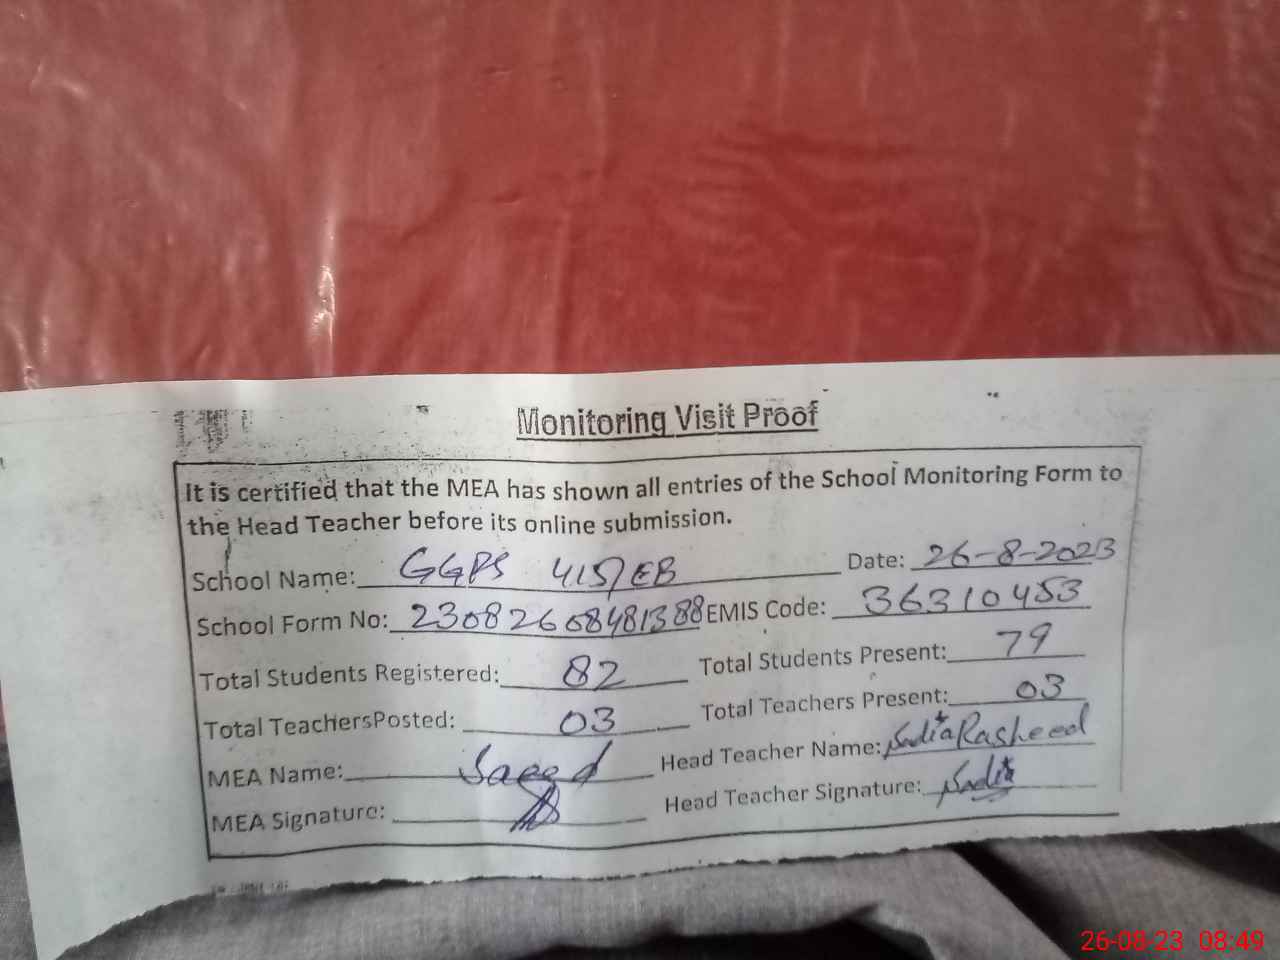 Monitoring Visit Proof
It is certified that the MEA has shown all entries of the School Monitoring Form to
the Head Teacher before its online submission.
School Name: GGPS 415/EB Date: 26-8-2023
School Form No: 23082608481388 EMIS Code: 36310453
Total Students Registered: 82 Total Students Present: 79
Total TeachersPosted: 03 Total Teachers Present: 03
MEA Name: Saeed Head Teacher Name: Sadia Rasheed
MEA Signature: Head Teacher Signature: Sadia
26-08-23 08:49